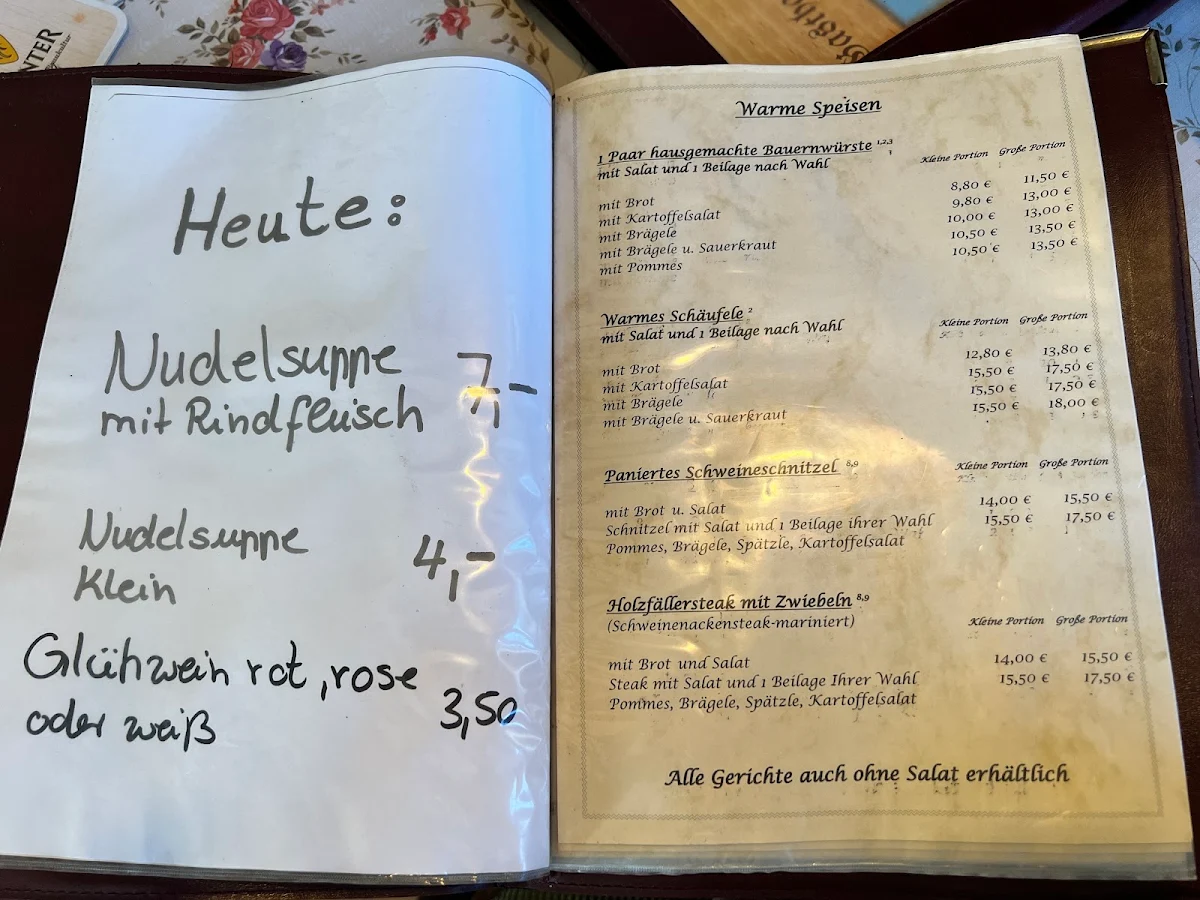 NTER
Heute:
Nudelsuppe 7,-
mit Rindfleisch
Nudelsuppe 4,-
Klein
Glühwein rot, rose
oder weiß 3,50
Warme Speisen
1 Paar hausgemachte Bauernwürste 1,2,3
mit Salat und 1 Beilage nach Wahl
Kleine Portion Große Portion
mit Brot 8,80 € 11,50 €
mit Kartoffelsalat 9,80 € 13,00 €
mit Brägele 10,00 € 13,00 €
mit Brägele u. Sauerkraut 10,50 € 13,50 €
mit Pommes 10,50 € 13,50 €
Warmes Schäufele 2
mit Salat und 1 Beilage nach Wahl
Kleine Portion Große Portion
mit Brot 12,80 € 13,80 €
mit Kartoffelsalat 15,50 € 17,50 €
mit Brägele 15,50 € 17,50 €
mit Brägele u. Sauerkraut 15,50 € 18,00 €
Paniertes Schweineschnitzel 8,9
Kleine Portion Große Portion
mit Brot u. Salat 14,00 € 15,50 €
Schnitzel mit Salat und 1 Beilage ihrer Wahl 15,50 € 17,50 €
Pommes, Brägele, Spätzle, Kartoffelsalat
Holzfällersteak mit Zwiebeln 8,9
(Schweinenackensteak-mariniert)
Kleine Portion Große Portion
mit Brot und Salat 14,00 € 15,50 €
Steak mit Salat und 1 Beilage Ihrer Wahl 15,50 € 17,50 €
Pommes, Brägele, Spätzle, Kartoffelsalat
Alle Gerichte auch ohne Salat erhältlich